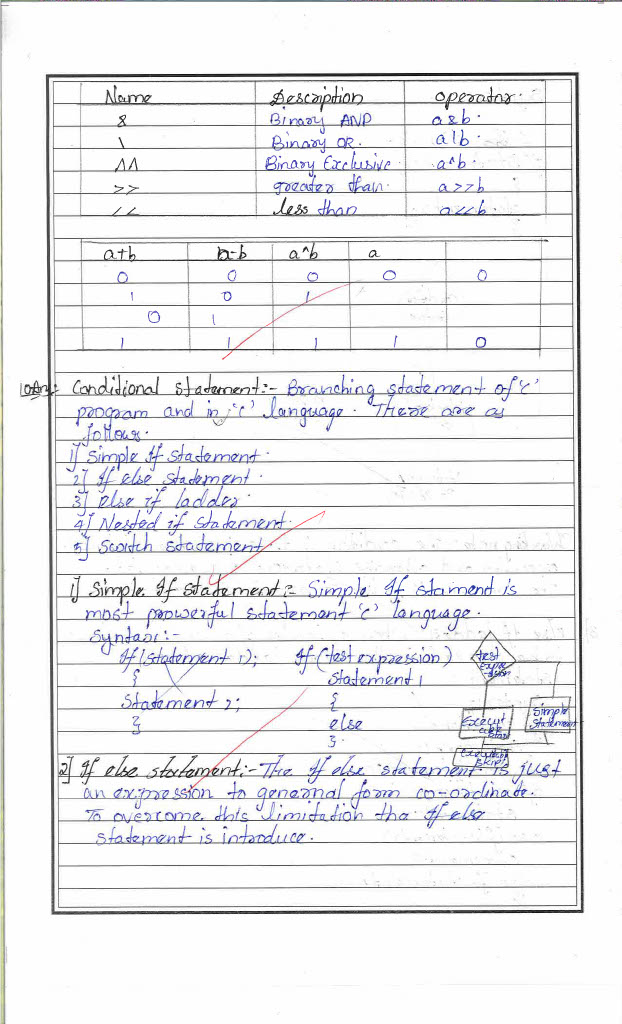 Name Description Operator.
& Binary AND a&b.
\ Binary OR. a|b.
^^ Binary Exclusive. a^b.
>> greater than. a>>b
<< less than a<<b.
a+b a-b a^b a
0 0 0 0 0
1 0 1
0 1
1 1 1 1 0
10Ans:- Conditional Statement:- Branching statement of 'c'
program and in 'c' language. There are as
follows.
1] Simple If Statement.
2] If else Statement.
3] Else if ladder.
4] Nested if Statement.
5] Switch statement.
1] Simple If statement:- Simple If stament is
most prowerful statement 'c' language.
Syntax:-
If (Statement 1); If (test expression)
{ Statement 1
Statement 2; {
} else
}.
test
Simple
Statement
2] If else statement:- The If else statement is just
an expression to genernal form co-ordinate.
To overcome this limitation tha If else
statement is introduce.